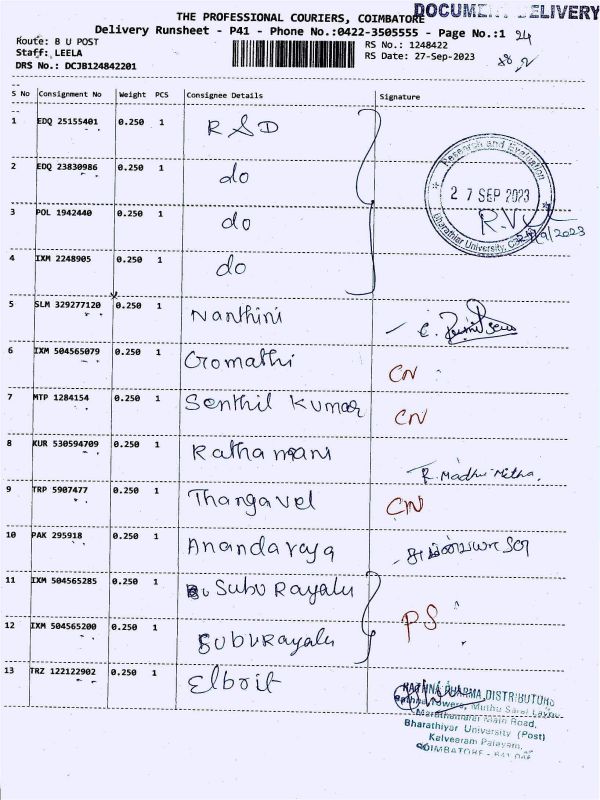 THE PROFESSIONAL COURIERS, COIMBATORE
DOCUMENT DELIVERY
Delivery Runsheet - P41 - Phone No.:0422-3505555 - Page No.:1 24
Route: B U POST
RS No.: 1248422
Staff: LEELA
RS Date: 27-Sep-2023
DRS No.: DCJB124842201
S No Consignment No Weight PCS Consignee Details Signature
1 EDQ 25155401 0.250 1 R&D
2 EDQ 23830986 0.250 1 do
Research and Evaluation
27 SEP 2023
Bharathiar University,
3 POL 1942440 0.250 1 do
4 IXM 2248905 0.250 1 do
5 SLM 329277120 0.250 1 Nanthini
6 IXM 504565079 0.250 1 Gomathi CN
7 MTP 1284154 0.250 1 Senthil Kumar CN
8 KUR 530594709 0.250 1 Rathamani R. Madhumitha.
9 TRP 5907477 0.250 1 Thangavel CN
10 PAK 295918 0.250 1 Anandaraja
11 IXM 504565285 0.250 1 Subu Rayalu
PS
12 IXM 504565200 0.250 1 Suburayalu
13 TRZ 122122902 0.250 1 Elbrit
RATHNA PHARMA DISTRIBUTORS
Rathna Towers, Muthu Sarei Layout
Marathamalai Main Road,
Bharathiyar University (Post)
Kalveeram Palayam,
COIMBATORE - 641 046